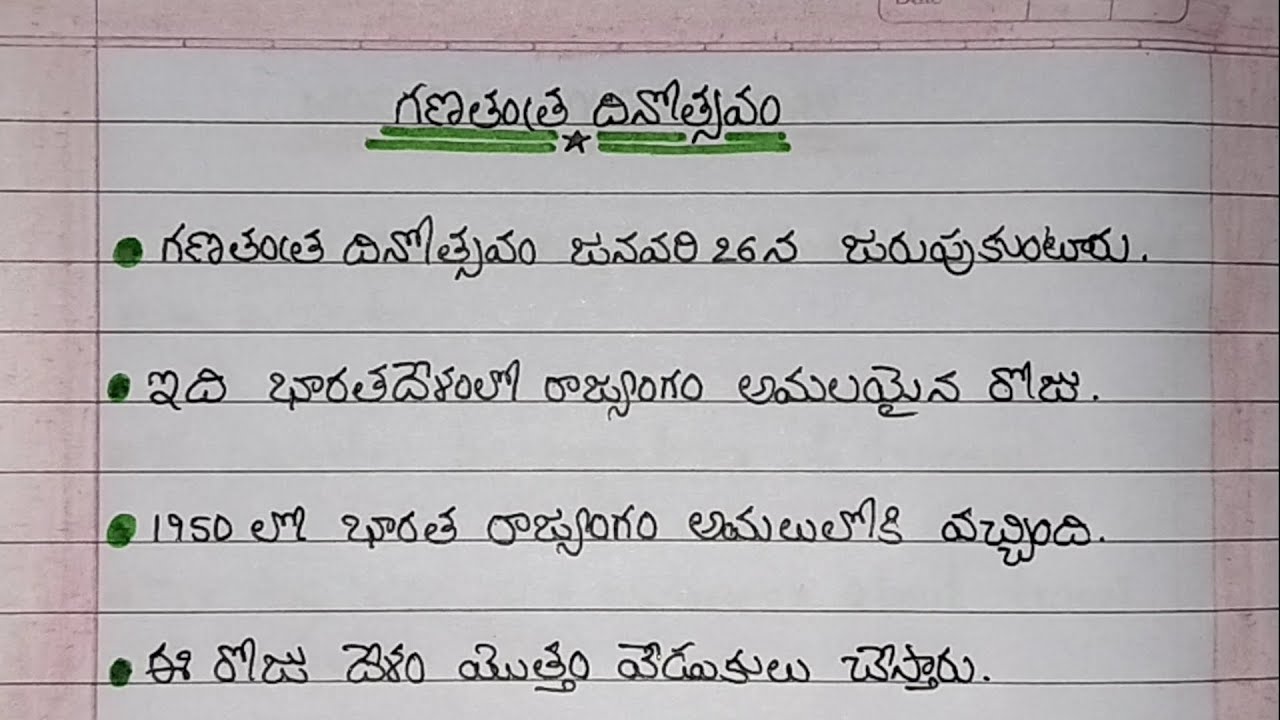 గణతంత్ర దినోత్సవం
గణతంత్ర దినోత్సవం జనవరి 26న జరుపుకుంటారు.
ఇది భారతదేశంలో రాజ్యాంగం అమలయైన రోజు.
1950 లో భారత రాజ్యాంగం అమలులోకి వచ్చింది.
ఈ రోజు దేశం మొత్తం వేడుకలు చేస్తారు.